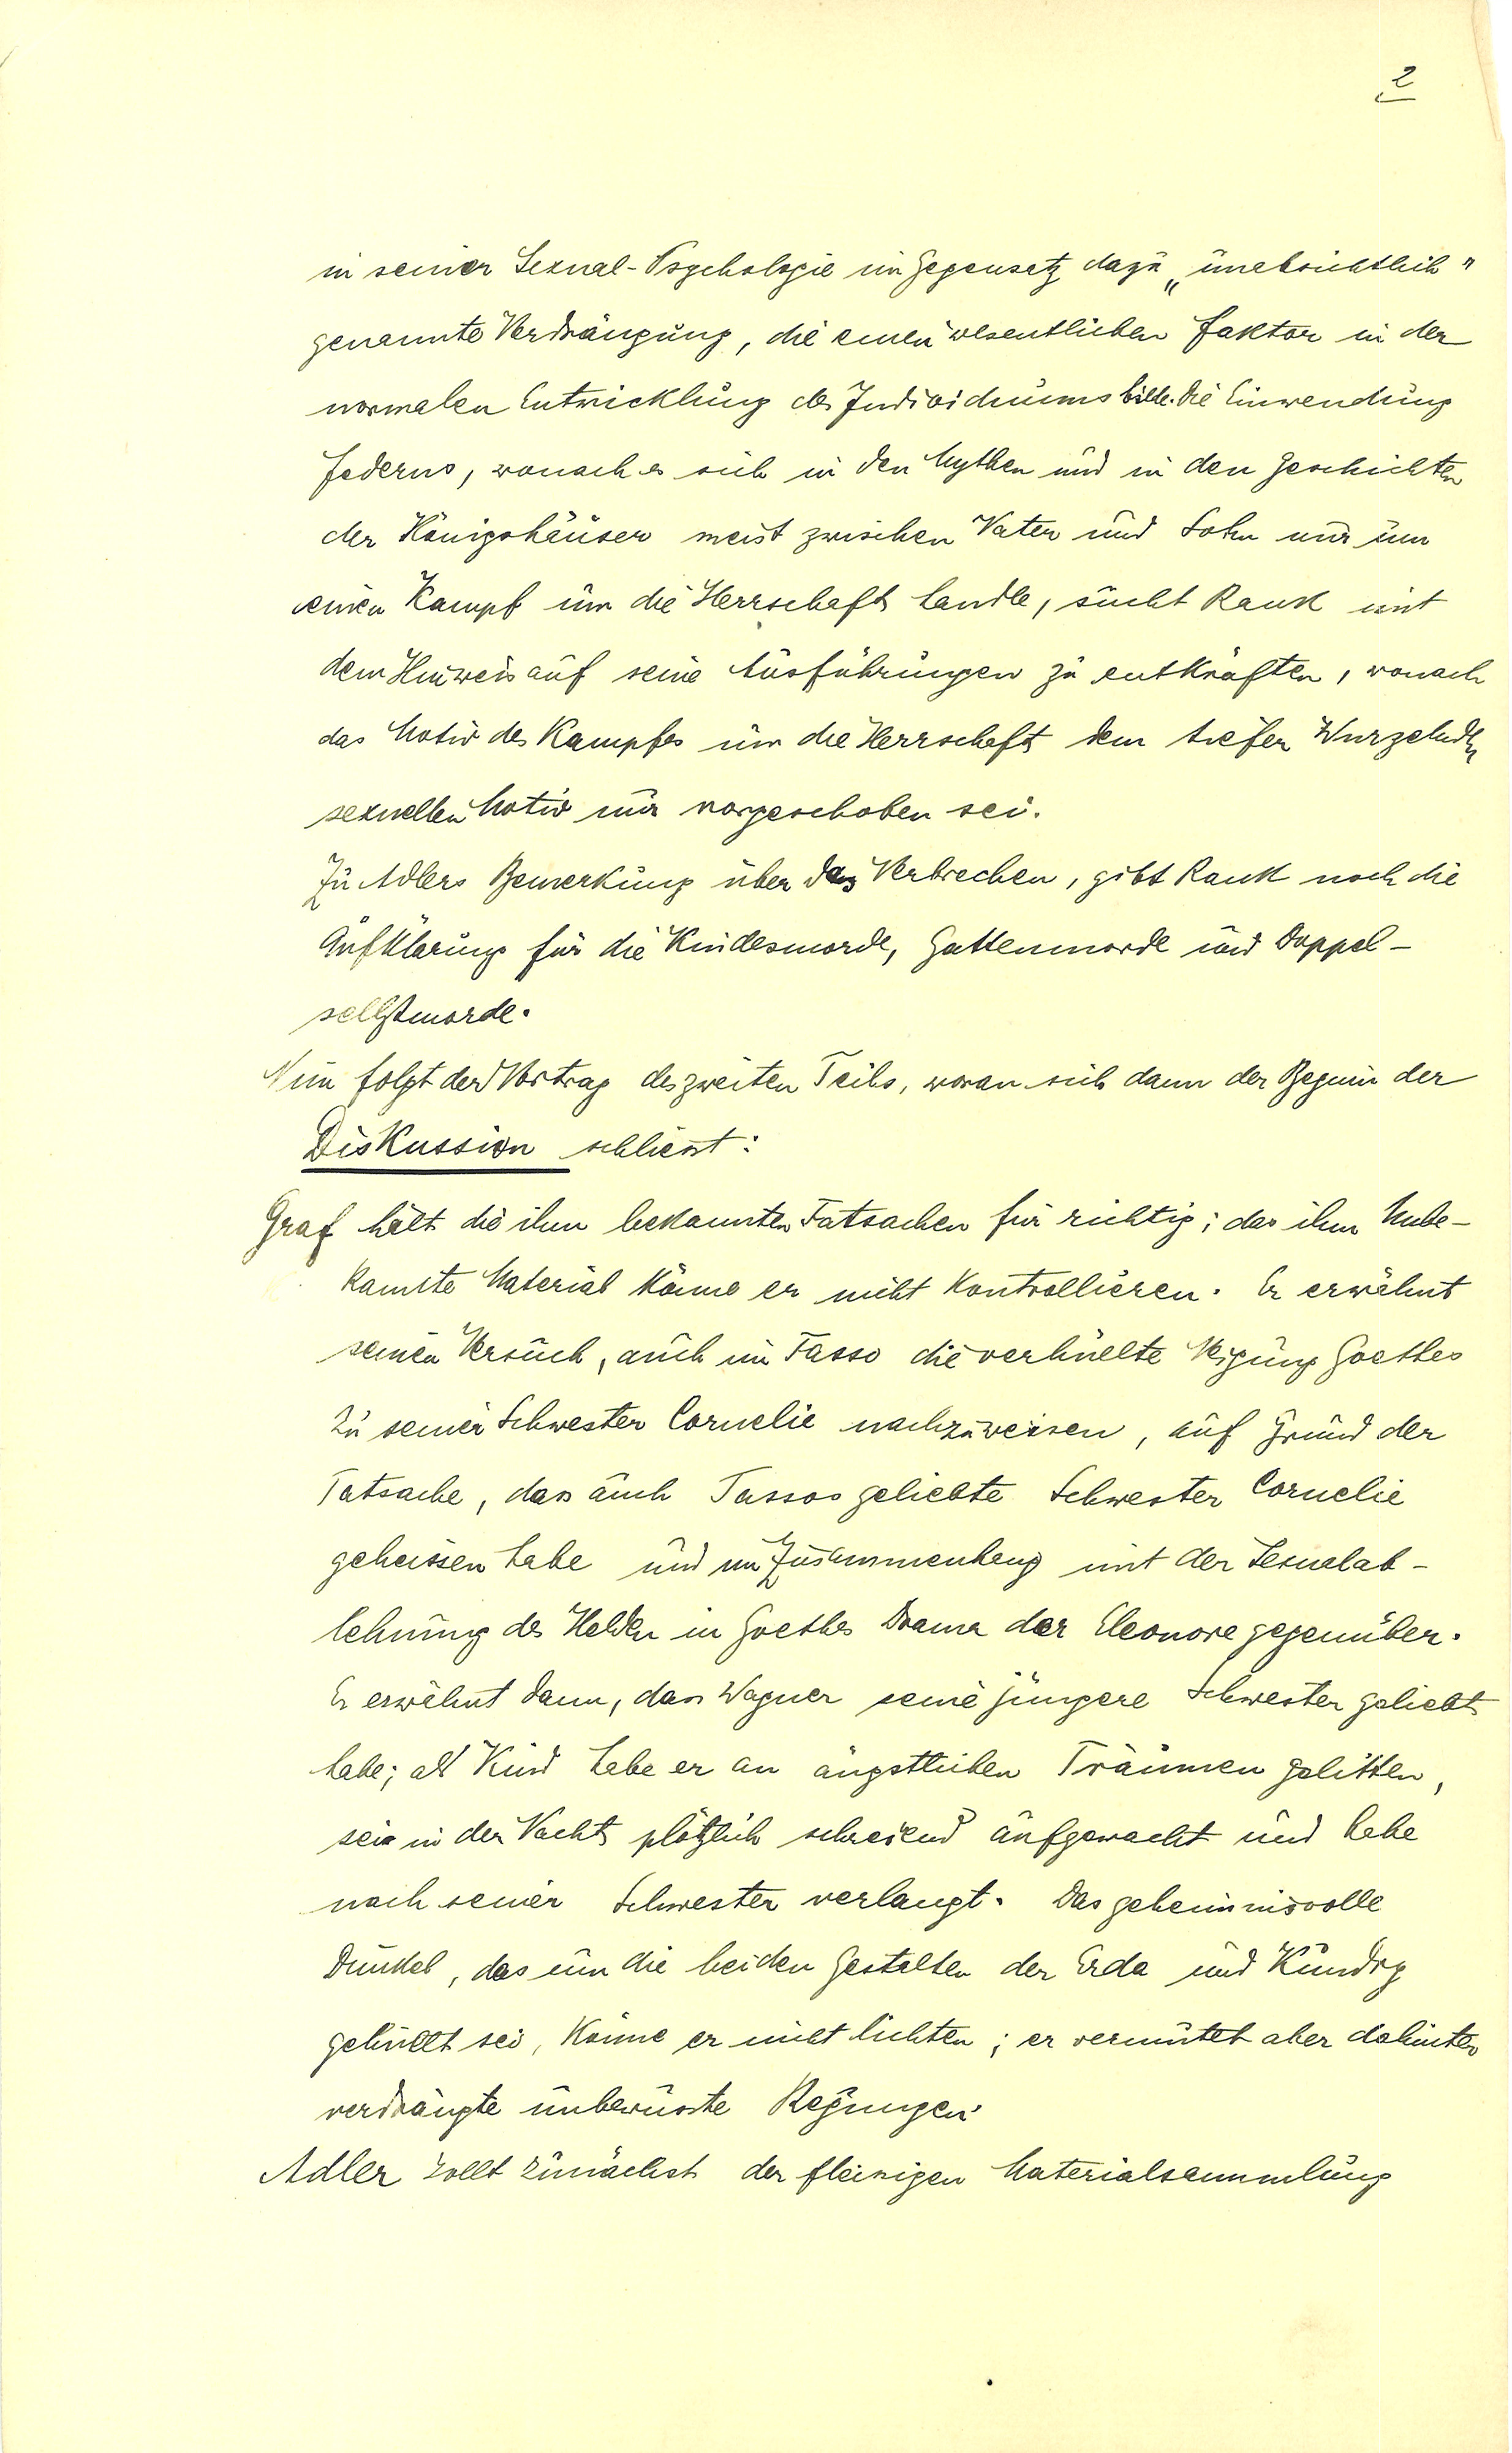 2
in seiner Sexual-Psychologie im Gegensatz dazu „unabsichtlich"
genannte Verdrängung, die einen wesentlichen Faktor in der
normalen Entwicklung des Individuums bilde. Die Einwendung
Federns, wonach es sich in den Mythen und in den Geschichten
der Königshäuser meist zwischen Vater und Sohn nur um
einen Kampf um die Herrschaft handle, sucht Rank mit
dem Hinweis auf seine Ausführungen zu entkräften, wonach
das Motiv des Kampfes um die Herrschaft dem tiefer Wurzelnden
sexuellen Motiv nur vorgeschoben sei.
Zu Adlers Bemerkung über das Verbrechen, gibt Rank noch die
Aufklärung für die Kindesmorde, Gattenmorde und Doppel-
selbstmorde.
Nun folgt der Vortrag des zweiten Teils, woran sich dann der Beginn der
Diskussion schliesst:
Graf hält die ihm bekannten Tatsachen für richtig; das ihm Unbe-
kannte Material könne er nicht kontrollieren. Er erwähnt
seinen Versuch, auch im Tasso die verhüllte Neigung Goethes
zu seiner Schwester Cornelie nachzuweisen, auf Grund der
Tatsache, dass auch Tassos geliebte Schwester Cornelie
geheissen habe und im Zusammenhang mit der Sexualab-
lehnung des Helden in Goethes Drama der Eleonore gegenüber.
Er erwähnt dann, dass Wagner seine jüngere Schwester geliebt
habe; als Kind habe er an ängstlichen Träumen gelitten,
sei in der Nacht plötzlich schreiend aufgewacht und habe
nach seiner Schwester verlangt. Das geheimnisvolle
Dunkel, das um die beiden Gestalten der Erda und Kundry
gehüllt sei, könne er nicht lichten; er vermutet aber dahinter
verdrängte unbewusste Regungen.
Adler zollt zunächst der fleissigen Materialsammlung